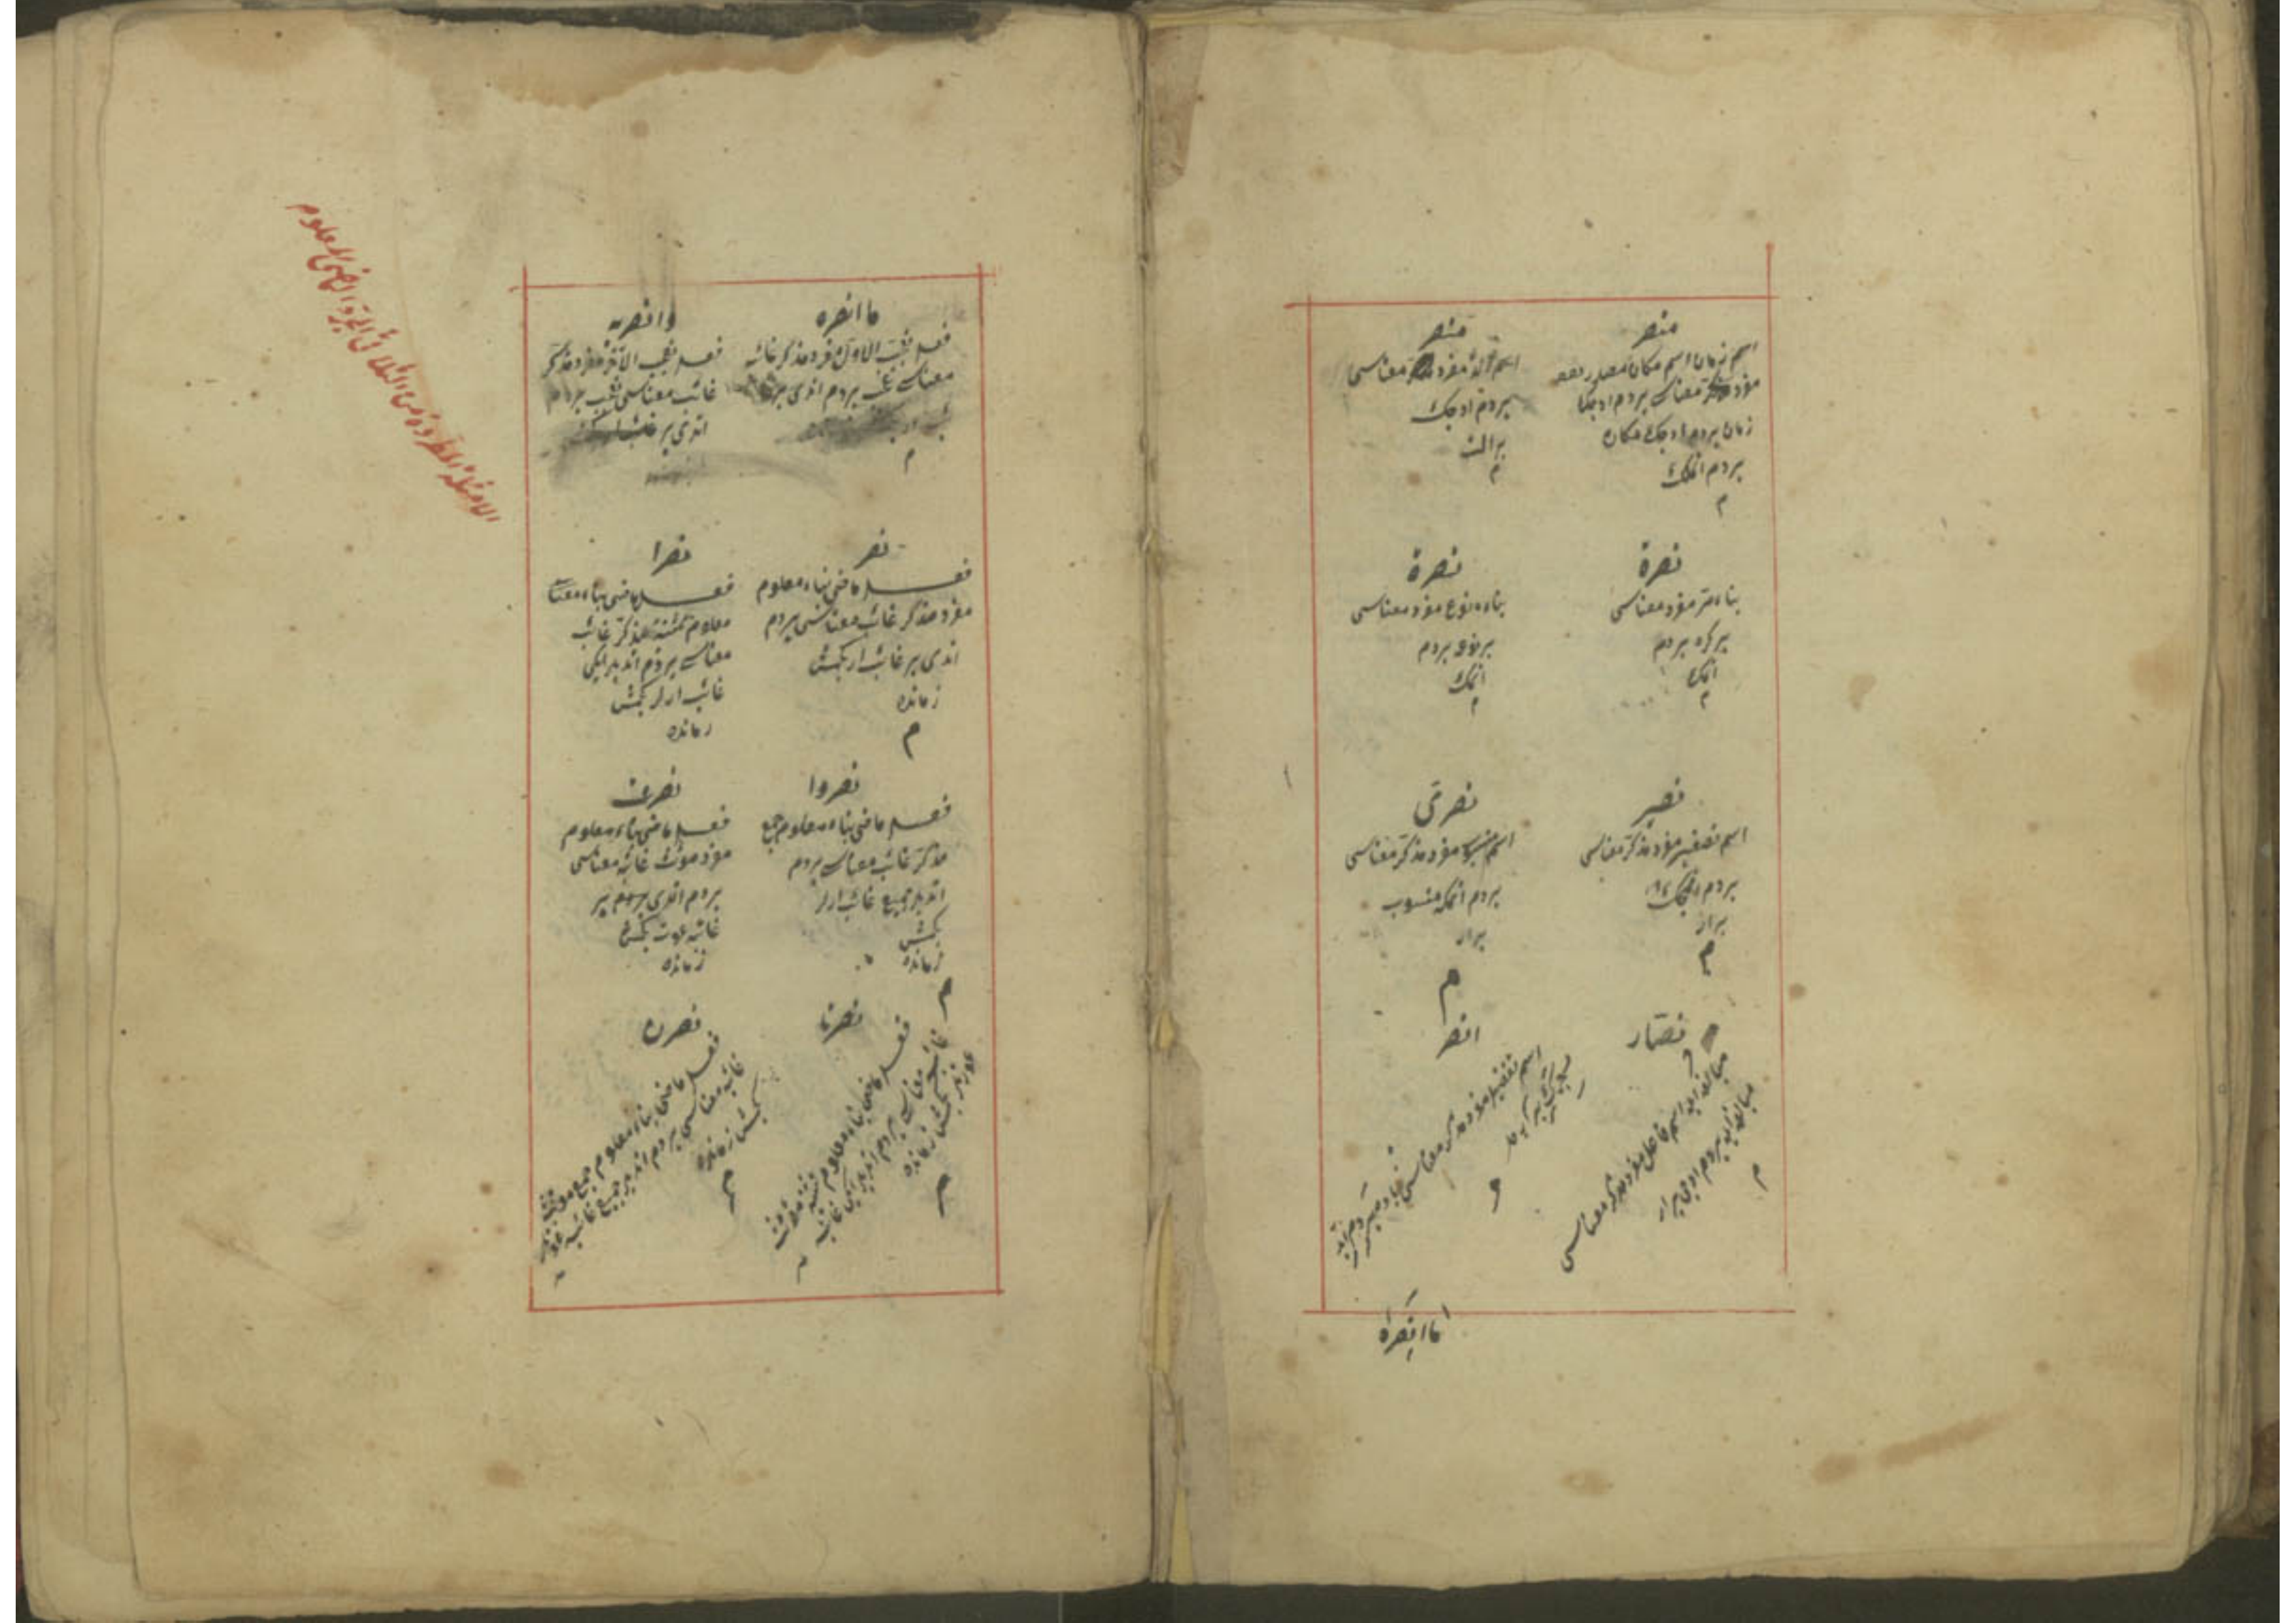 منصر
اسم زمان اسم مكان مصدر ميمى
مفرد مذكر معناسى يردم ادجك
زمان يردم ادجك مكان
يردم اتمك
م
منصر
اسم آلت مفرد مذكر معناسى
يردم ادجك
بر آلت
م
نصرة
بناء مره مفرد معناسى
بر كره يردم
اتمك
م
نصرة
بناء نوع مفرد معناسى
بر نوع يردم
اتمك
م
نصير
اسم تصغير مفرد مذكر معناسى
يردم
بر ار
م
نصرى
اسم منسوب مفرد مذكر معناسى
يردم اتمكه منسوب
بر ار
م
نصار
مبالغه ايله اسم فاعل مفرد مذكر معناسى
مبالغه ايله يردم ادجى بر ار
م
انصر
اسم تفضيل مفرد مذكر معناسى
ما انصره
ما انصره
فعل تعجب الاول مفرد مذكر غائب
معناسى عجب يردم اتدى بر غائب
م
وانصر به
فعل تعجب الآخر مفرد مذكر
غائب معناسى عجب يردم
اتدى بر غائب ار
نصر
فعل ماضى بناء معلوم
مفرد مذكر غائب معناسى يردم
اتدى بر غائب ار كچمش
زمانده
م
نصرا
فعل ماضى بناء
معلوم تثنيه مذكر غائب
معناسى يردم اتديلر ايكى
غائب ارلر كچمش
زمانده
نصروا
فعل ماضى بناء معلوم جمع
مذكر غائب معناسى يردم
اتديلر جميع غائب ارلر
كچمش
زمانده
م
نصرت
فعل ماضى بناء معلوم
مفرد مؤنث غائبه معناسى
يردم اتدى بر
غائبه عورت كچمش
زمانده
نصرتا
فعل ماضى بناء معلوم تثنيه مؤنث
غائبه معناسى يردم اتديلر ايكى غائبه
عورتلر كچمش زمانده
م
نصرن
فعل ماضى بناء معلوم جمع مؤنث
غائبه معناسى يردم اتديلر جميع غائبه عورتلر
كچمش زمانده
م
الامثلة المطردة من الثلاثى المجرد الماضى المعلوم